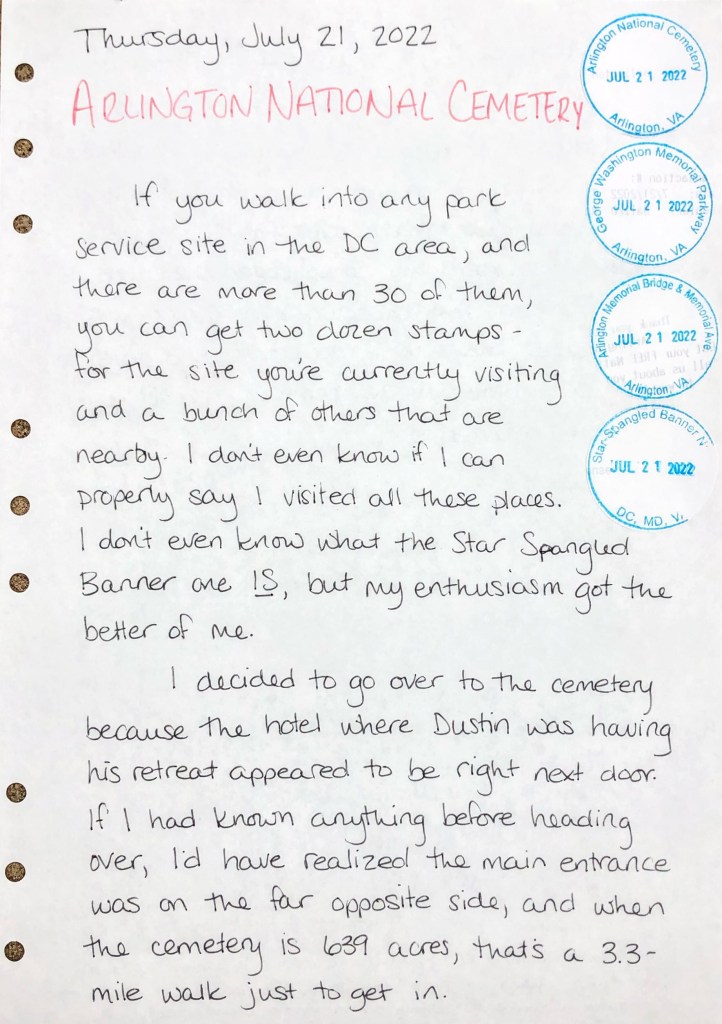 Thursday, July 21, 2022
ARLINGTON NATIONAL CEMETERY
Arlington National Cemetery
JUL 21 2022
Arlington, VA
George Washington Memorial Parkway
JUL 21 2022
Arlington, VA
Arlington Memorial Bridge & Memorial Ave
JUL 21 2022
Arlington, VA
Star-Spangled Banner N
JUL 21 2022
DC, MD, V
If you walk into any park
service site in the DC area, and
there are more than 30 of them,
you can get two dozen stamps -
for the site you're currently visiting
and a bunch of others that are
nearby. I don't even know if I can
properly say I visited all these places.
I don't even know what the Star Spangled
Banner one IS, but my enthusiasm got the
better of me.
I decided to go over to the cemetery
because the hotel where Dustin was having
his retreat appeared to be right next door.
If I had known anything before heading
over, I'd have realized the main entrance
was on the far opposite side, and when
the cemetery is 639 acres, that's a 3.3-
mile walk just to get in.